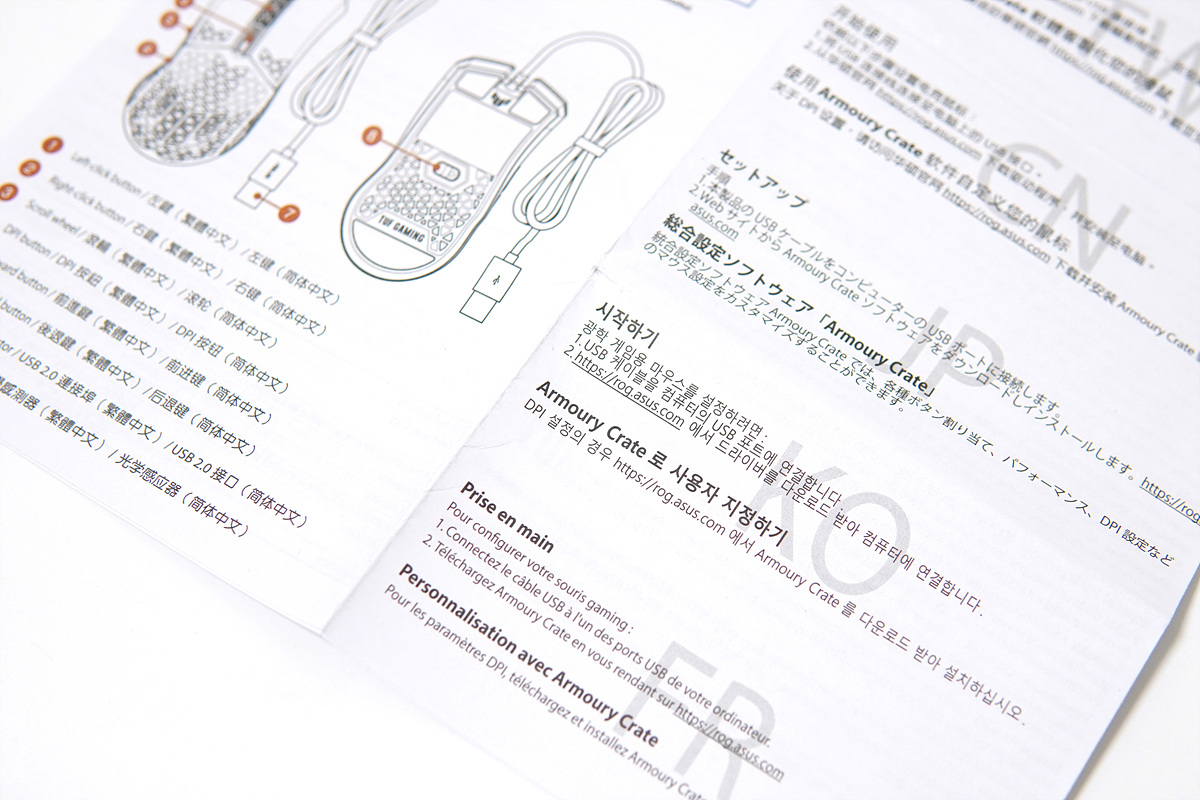 6
8
7
TUF GAMING
1 Left-click button / 左鍵（繁體中文）/ 左键（简体中文）
2 Right-click button / 右鍵（繁體中文）/ 右键（简体中文）
3 Scroll wheel / 滾輪（繁體中文）/ 滚轮（简体中文）
DPI button / DPI 按鈕（繁體中文）/ DPI 按钮（简体中文）
button / 前進鍵（繁體中文）/ 前进键（简体中文）
button / 後退鍵（繁體中文）/ 后退键（简体中文）
/ USB 2.0 連接埠（繁體中文）/ USB 2.0 接口（简体中文）
感測器（繁體中文）/ 光学感应器（简体中文）
TW
CN
开始使用
使用 Armoury Crate 软件自定义您的鼠标
关于 DPI 设置，请访问华硕官网 https://rog.asus.com 下载并安装 Armoury Crate
JP
セットアップ
手順
1. 本製品の USB ケーブルをコンピューターの USB ポートに接続します。
2. Web サイトから Armoury Crate ソフトウェアをダウンロードしインストールします。https://rog.
asus.com
総合設定ソフトウェア「Armoury Crate」
統合設定ソフトウェア Armoury Crate では、各種ボタン割り当て、パフォーマンス、DPI 設定など
のマウス設定をカスタマイズすることができます。
KO
시작하기
광학 게임용 마우스를 설정하려면 :
1. USB 케이블을 컴퓨터의 USB 포트에 연결합니다.
2. https://rog.asus.com 에서 드라이버를 다운로드 받아 컴퓨터에 연결합니다.
Armoury Crate 로 사용자 지정하기
DPI 설정의 경우 https://rog.asus.com 에서 Armoury Crate 를 다운로드 받아 설치하십시오.
FR
Prise en main
Pour configurer votre souris gaming :
1. Connectez le câble USB à l'un des ports USB de votre ordinateur.
2. Téléchargez Armoury Crate en vous rendant sur https://rog.asus.com
Personnalisation avec Armoury Crate
Pour les paramètres DPI, téléchargez et installez Armoury